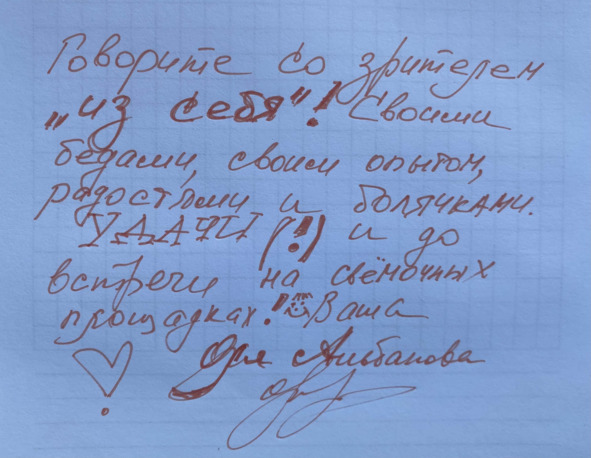 Говорите со зрителем
„из себя"! Своими
бедами, своим опытом,
радостями и болячками.
УДАЧИ (!) и до
встречи на съёмочных
площадках! Ваша
Альбанова